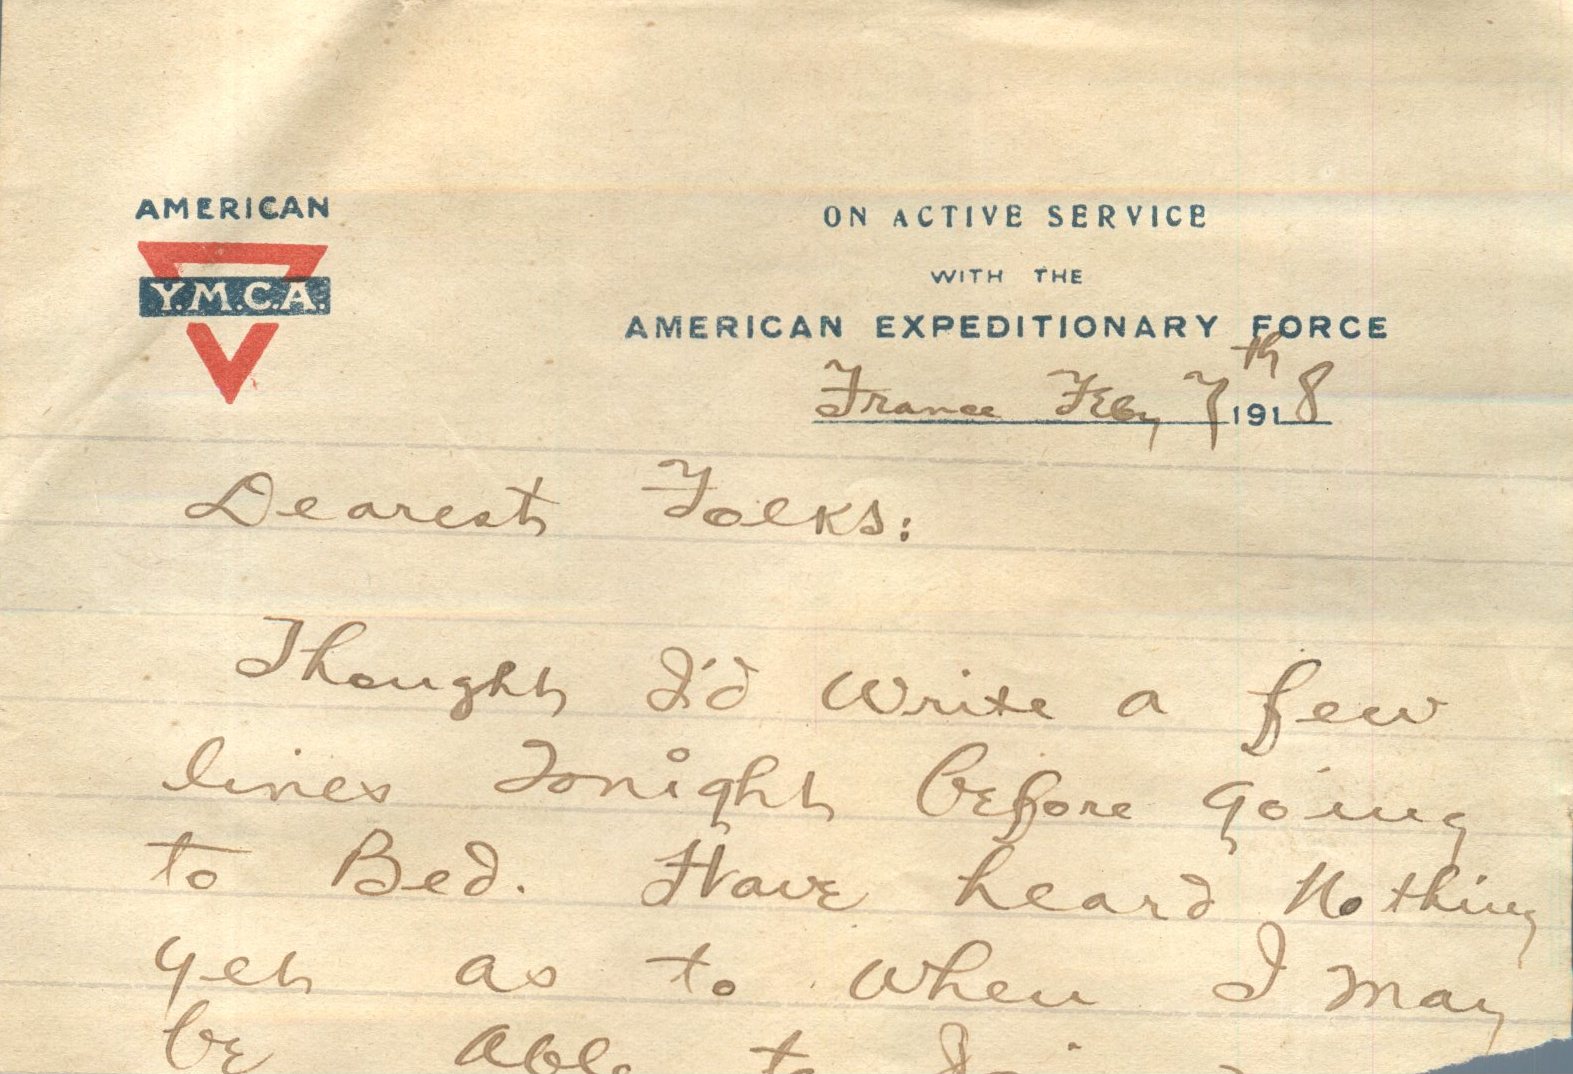 AMERICAN
Y.M.C.A.
ON ACTIVE SERVICE
WITH THE
AMERICAN EXPEDITIONARY FORCE
France Feby 7th 1918
Dearest Folks:
Thought I'd write a few
lines tonight before going
to Bed. Have heard nothing
yet as to when I may
be able to